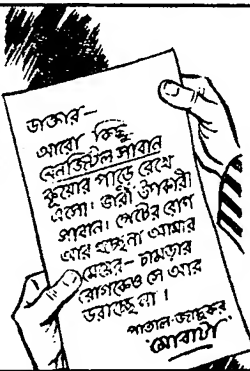 ডাক্তার—
আরো কিছু
মেনজিটল সাবান
কুয়োর পাড়ে রেখে
এসো। ভারী উপকারী
সাবান। পেটের রোগ
আর হচ্ছে না আমার
মেয়ের— চামড়ার
রোগকেও সে আর
ডরাচ্ছে না।
পাতাল-জাদুকর
মোবাটা